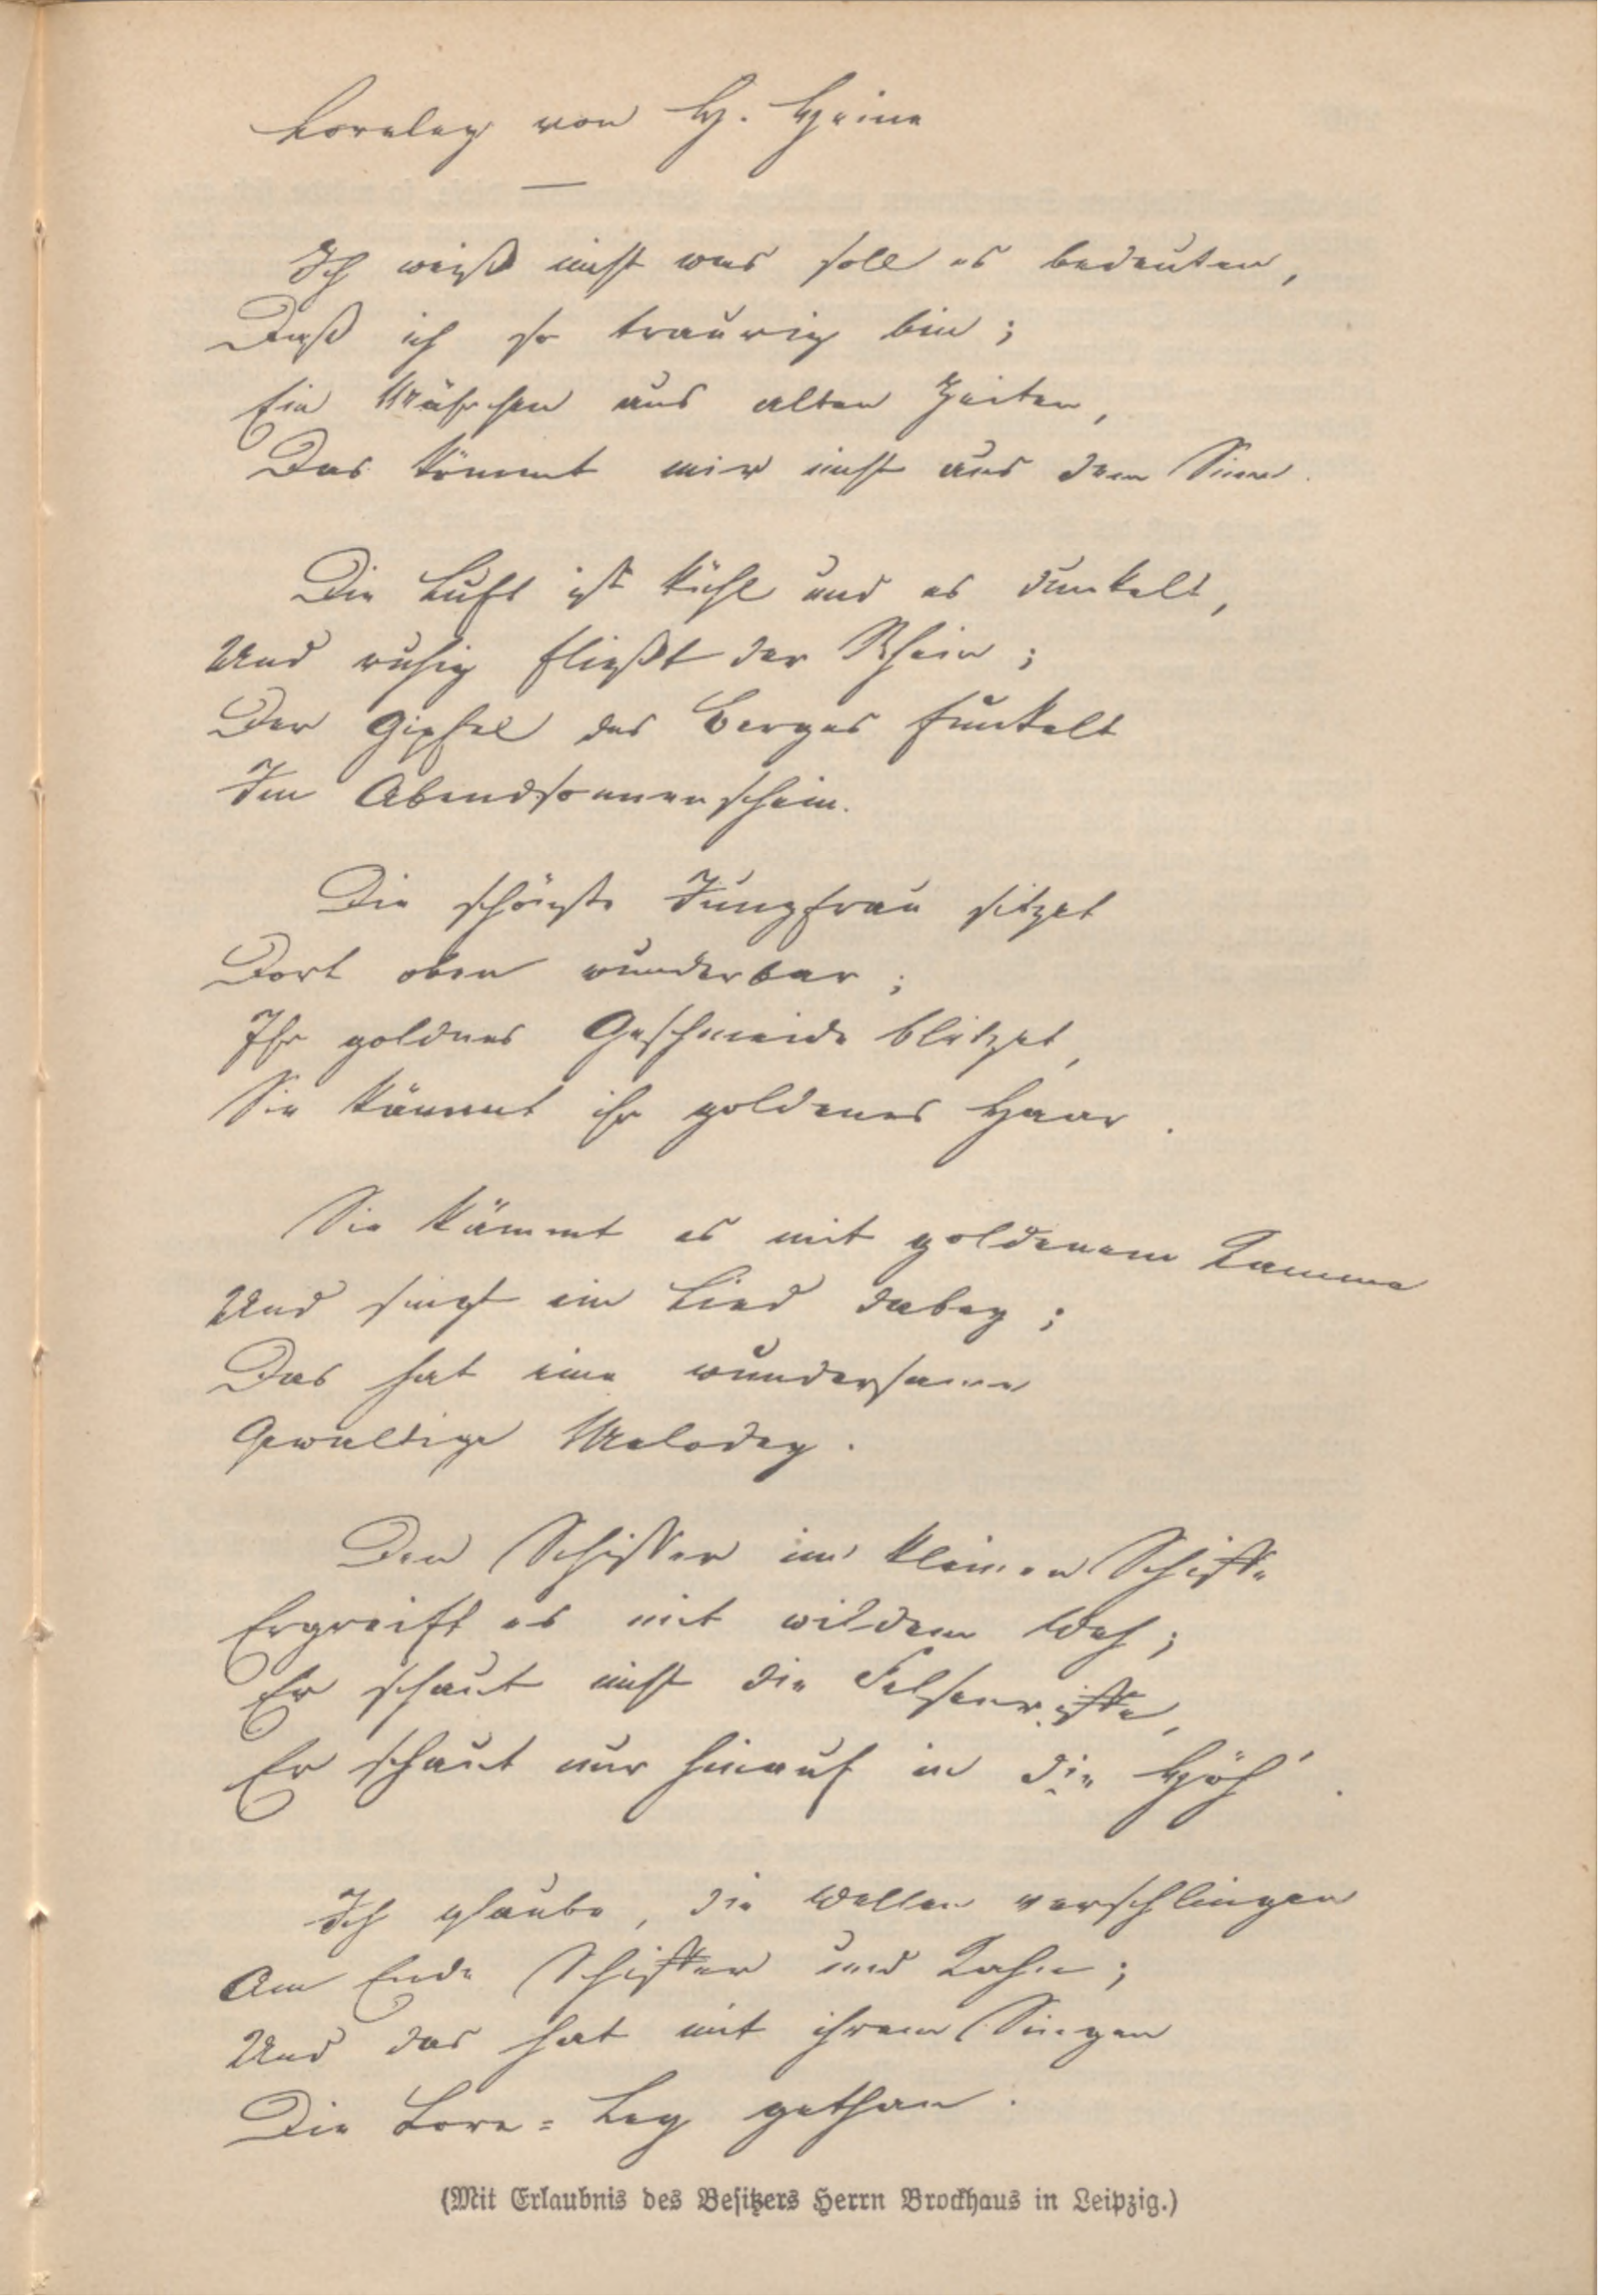 Loreley von H. Heine
Ich weiß nicht was soll es bedeuten,
Daß ich so traurig bin;
Ein Mährchen aus alten Zeiten,
Das kömmt mir nicht aus dem Sinn.
Die Luft ist kühl und es dunkelt,
Und ruhig fließt der Rhein;
Der Gipfel des Berges funkelt
Im Abendsonnenschein.
Die schönste Jungfrau sitzet
Dort oben wunderbar;
Ihr goldnes Geschmeide blitzet,
Sie kämmt ihr goldenes Haar.
Sie kämmt es mit goldenem Kamme
Und singt ein Lied dabey;
Das hat eine wundersame
Gewaltige Melodey.
Den Schiffer im kleinen Schiffe
Ergreift es mit wildem Weh;
Er schaut nicht die Felsenriffe,
Er schaut nur hinauf in die Höh'.
Ich glaube, die Wellen verschlingen
Am Ende Schiffer und Kahn;
Und das hat mit ihrem Singen
Die Lore-Ley gethan.
(Mit Erlaubnis des Besitzers Herrn Brockhaus in Leipzig.)